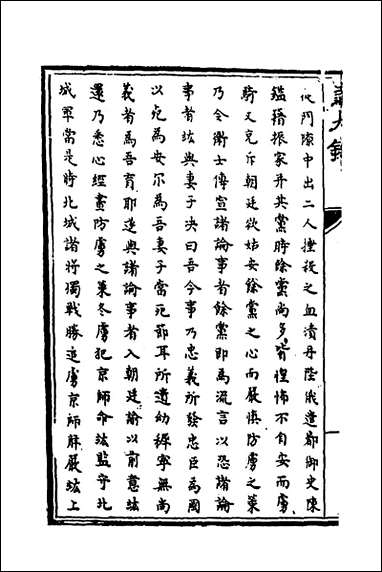 從門隙中出二人捶殺之血漬丹陛俄遣都御史陳
鎰籍振家并其黨時餘黨尚多皆惶怖不自安而虜
騎又充斥朝廷欲姑安餘黨之心而嚴慎防虜之策
乃令衛士傳宣諸論事者餘黨即為流言以恐諸論
事者竑與妻子决曰吾今事乃忠義所發忠臣為國
以死為安尔為吾妻子當死節耳所遺幼穉寧無尚
義者為吾育耶遂與諸論事者入朝廷諭以前意竑
還乃悉心經畫防虜之策冬虜犯京師命竑監守北
城軍當是時北城諸將獨戰勝追虜京師解嚴竑上